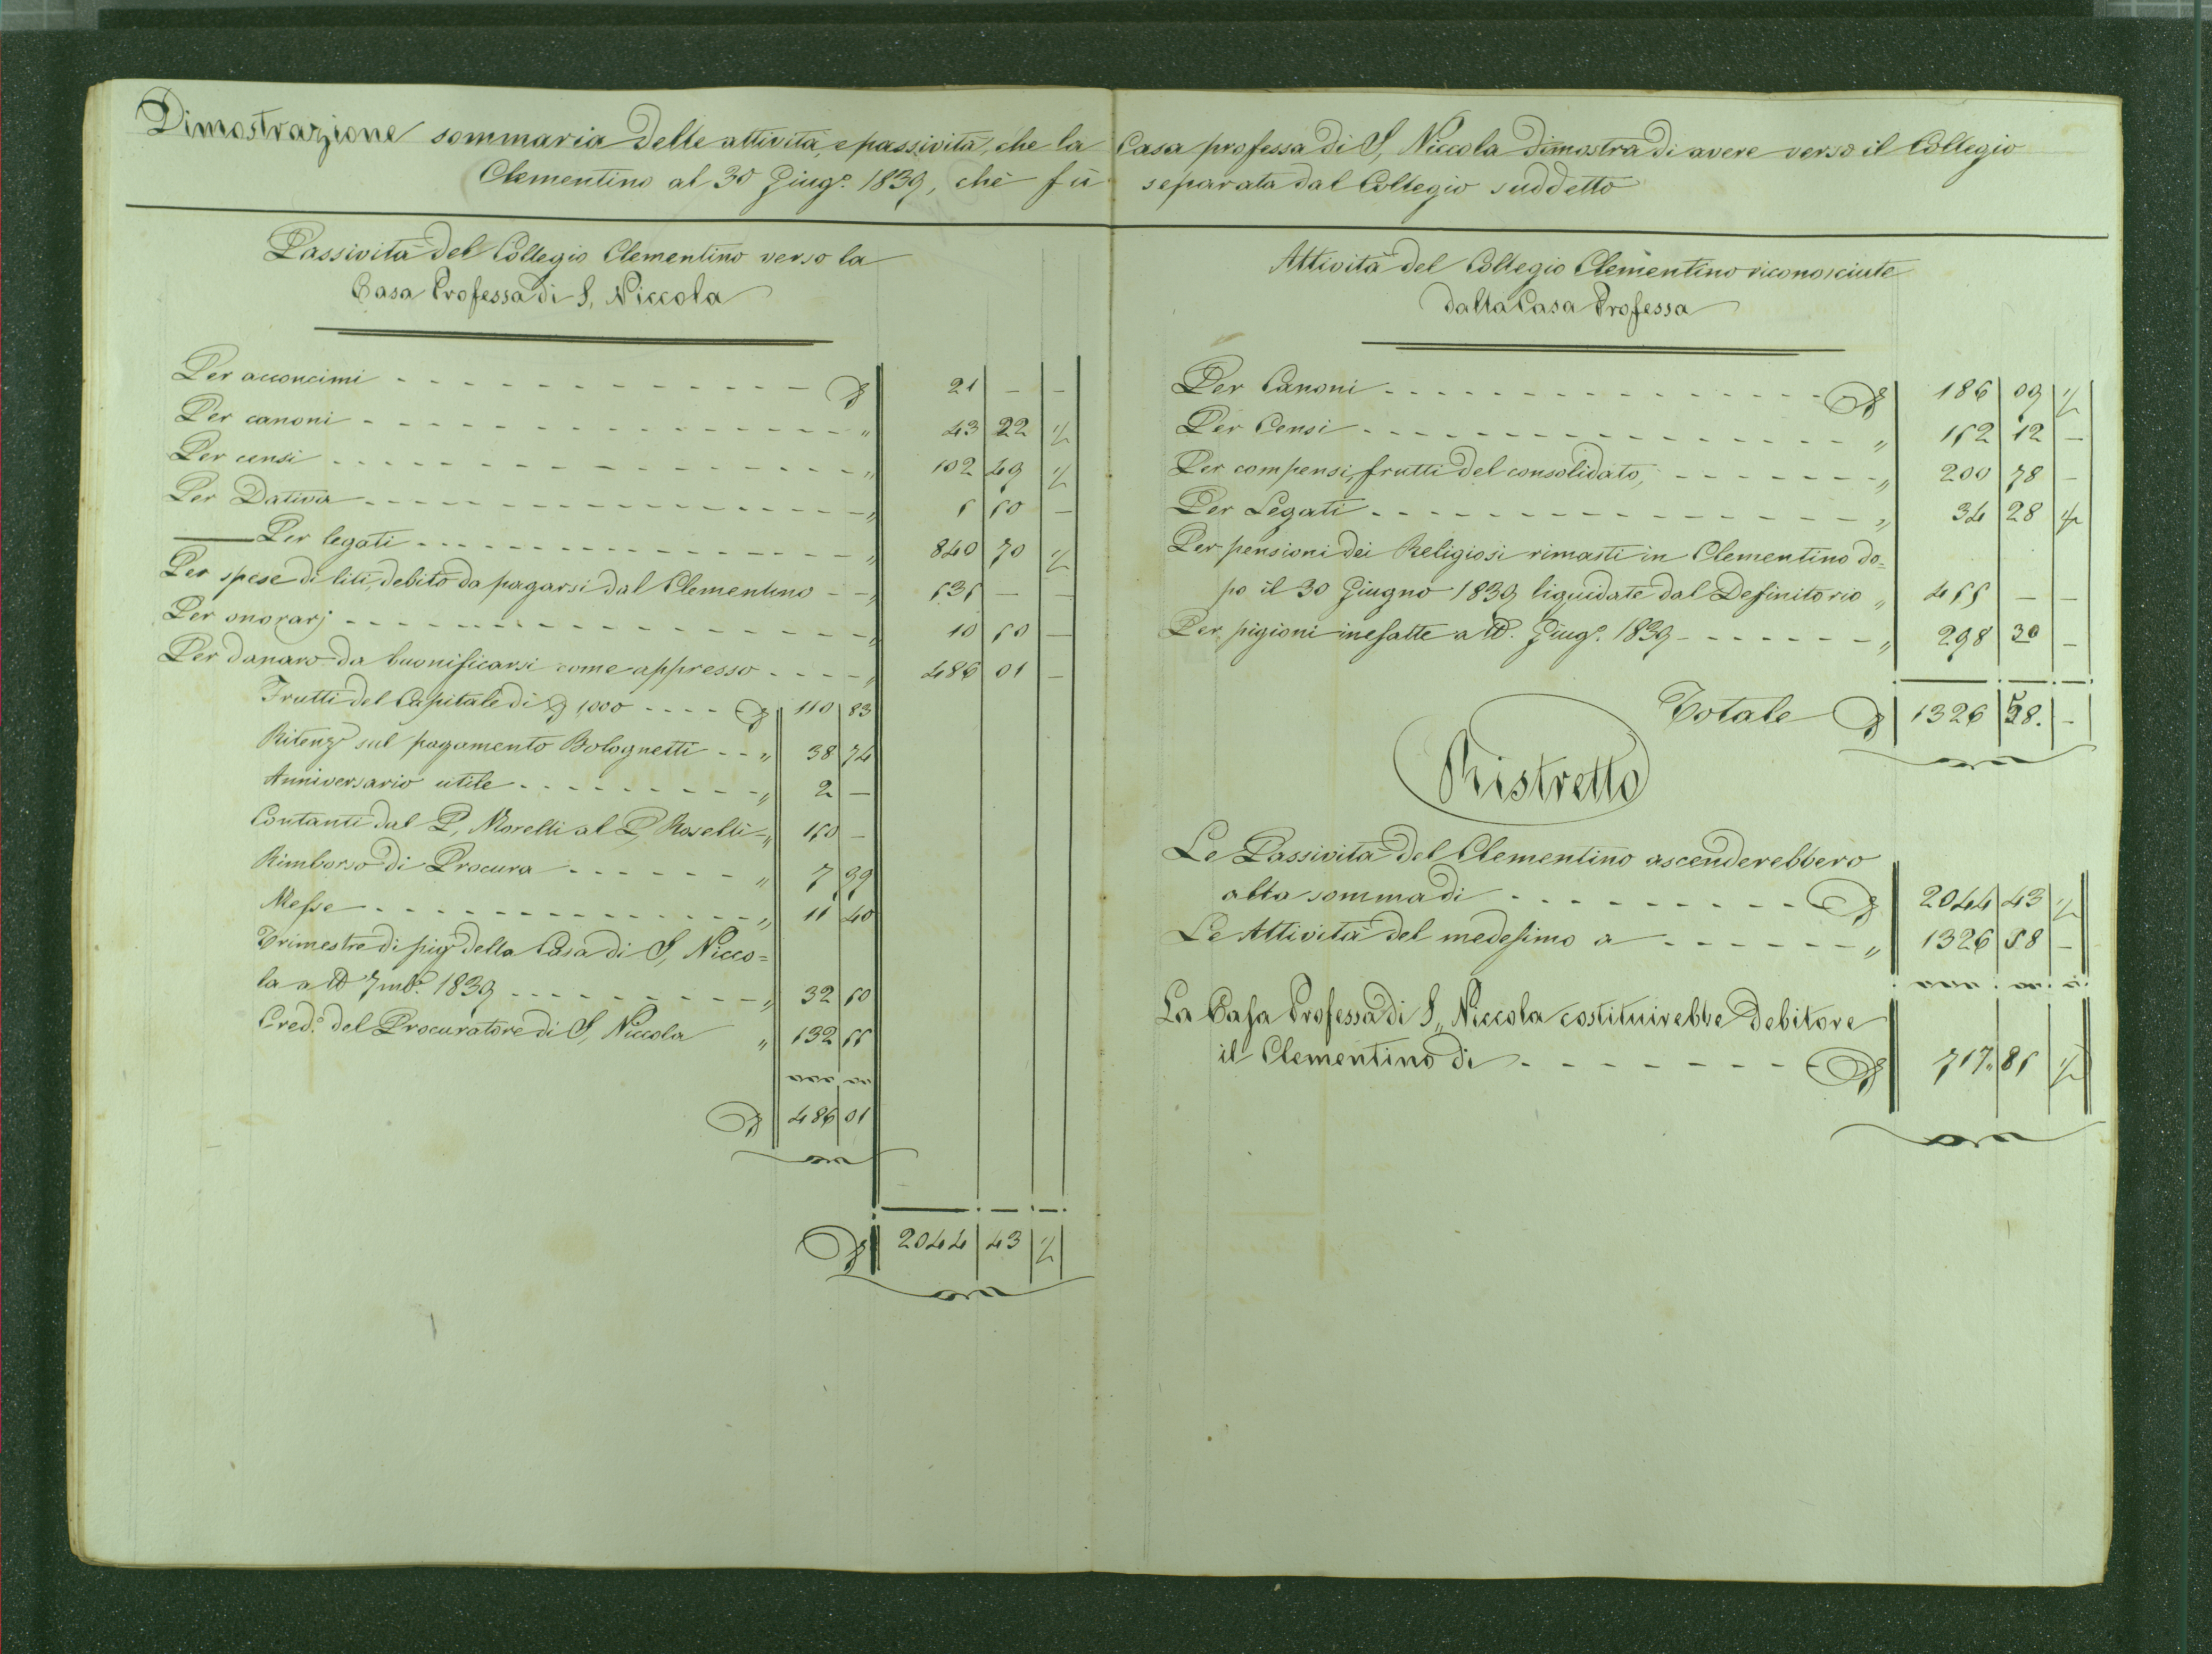 Dimostrazione sommaria delle attività, e passività, che la Casa professa di S. Niccola dimostra di avere verso il Collegio
Clementino al 30 Giug.º 1839, chè fù separata dal Collegio suddetto
Passività del Collegio Clementino verso la
Casa Professa di S. Niccola
Per acconcimi - - - - - 21 | — | —
Per canoni - - - - - " 43 | 22 | ½
Per censi - - - - - " 102 | 49 | ½
Per Dativa - - - - - " 5 | 50 | —
Per legati - - - - - " 840 | 70 | ½
Per spese di liti, debito da pagarsi dal Clementino - - " 535 | — | —
Per onorarj - - - - - " 10 | 50 | —
Per danaro da buonificarsi come appresso - - - - " 486 | 01 | —
Frutti del Capitale di 1,000 - - - - 110 | 83
Ritenz.e sul pagamento Bolognetti - - " 38 | 74
Anniversario utile - - - - - " 2 | —
Contanti dal P. Morelli al P. Roselli - " 150 | —
Rimborso di Procura - - - - - " 7 | 99
Messe - - - - - " 11 | 40
Trimestre di pig.e della Casa di S. Nicco=
la a tt.º 7mb.e 1839 - - - - - " 32 | 50
Cred.º del Procuratore di S. Niccola " 132 | 55
486 | 01
2044 | 43 | ½
Attività del Collegio Clementino riconosciute
dalla Casa Professa
Per Canoni - - - - - 186 | 09 | ½
Per Censi - - - - - " 152 | 12 | —
Per compensi, frutti del consolidato, - - - - - " 200 | 78 | —
Per Legati - - - - - " 34 | 28 | ½
Per pensioni dei Religiosi rimasti in Clementino do=
po il 30 Giugno 1839 liquidate dal Definitorio " 455 | — | —
Per pigioni inesatte a tt.º Giug.º 1839 - - - - - " 298 | 30 | —
Totale 1326 | 58. | —
Ristretto
Le Passività del Clementino ascenderebbero
alla somma di - - - - - 2044 | 43 | ½
Le Attività del medesimo a - - - - - " 1326 | 58 | —
La Casa Professa di S. Niccola costituirebbe debitore
il Clementino di - - - - - 717. | 85 | ½